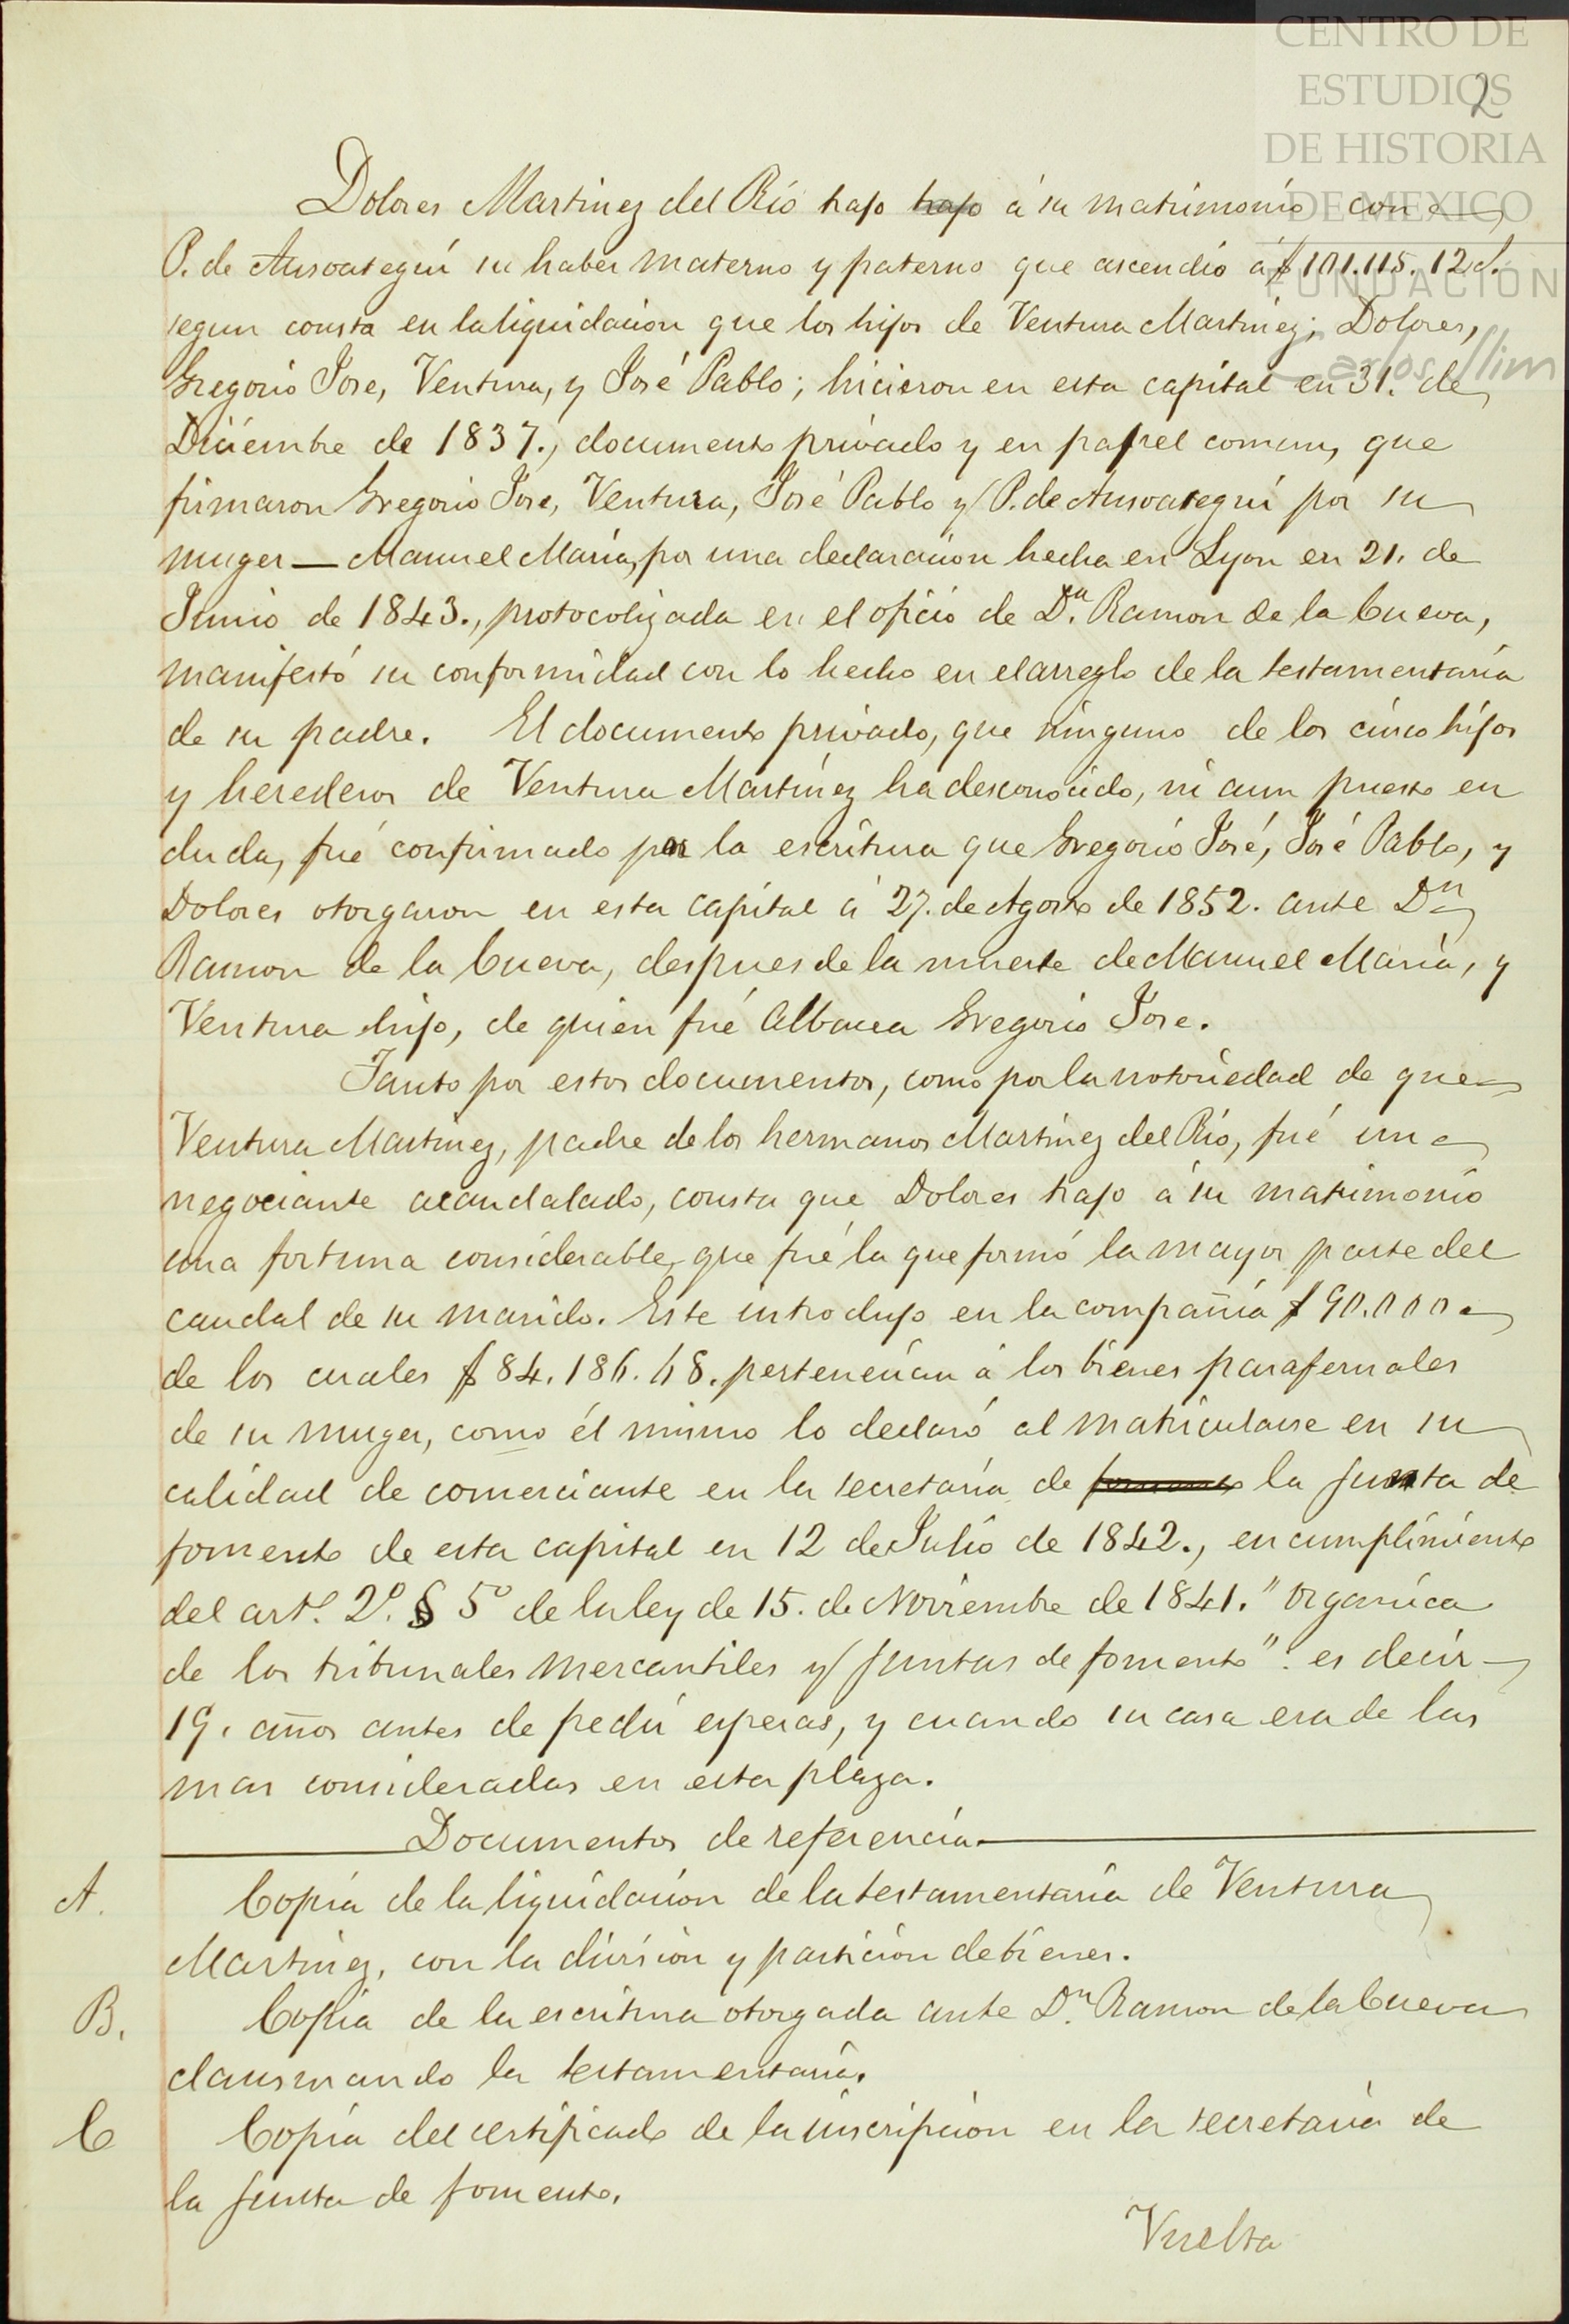 CENTRO DE
ESTUDIOS
DE HISTORIA
DE MEXICO
FUNDACIÓN
Carlos Slim
2
Dolores Martinez del Rio trajo trajo á su matrimonio con
P. de Ansoategui su haber materno y paterno que ascendió á $ 101.115.12 c/.
segun consta en la liquidacion que los hijos de Ventura Martinez; Dolores,
Gregorio Jose, Ventura, y José Pablo; hicieron en esta capital en 31. de
Diciembre de 1837., documento privado y en papel comun, que
firmaron Gregorio Jose, Ventura, José Pablo y P. de Ansoategui por su
muger — Manuel Maria, por una declaracion hecha en Lyon en 21. de
Junio de 1843., protocolizada en el oficio de Dn. Ramon de la Cueva,
manifestó su conformidad con lo hecho en el arreglo de la testamentaria
de su padre. El documento privado, que ninguno de los cinco hijos
y herederos de Ventura Martinez ha desconocido, ni aun puesto en
duda, fué confirmado por la escritura que Gregorio José, José Pablo, y
Dolores otorgaron en esta capital á 27. de Agosto de 1852. ante Dn
Ramon de la Cueva, despues de la muerte de Manuel Maria, y
Ventura hijo, de quien fué Albacea Gregorio Jose.
Tanto por estos documentos, como por la notoriedad de que
Ventura Martinez, padre de los hermanos Martinez del Rio, fué un
negociante acaudalado, consta que Dolores trajo á su matrimonio
una fortuna considerable, que fué la que formó la mayor parte del
caudal de su marido. Este introdujo en la compañia $ 90.000
de los cuales $ 84.186.68. pertenecian á los bienes parafernales
de su muger, como él mismo lo declaró al matricularse en su
calidad de comerciante en la secretaria de fomento la junta de
fomento de esta capital en 12 de Julio de 1842., en cumplimiento
del arto. 2º. § 5º de la ley de 15. de Noviembre de 1841. "organica
de los tribunales mercantiles y juntas de fomento": es decir
19. años antes de pedir esperas, y cuando su casa era de las
mas consideradas en esta plaza.
Documentos de referencia
A. Copia de la liquidacion de la testamentaria de Ventura
Martinez, con la division y particion de bienes.
B. Copia de la escritura otorgada ante Dn. Ramon de la Cueva
clausurando la testamentaria.
C Copia del certificado de la inscripcion en la secretaria de
la junta de fomento.
Vuelta